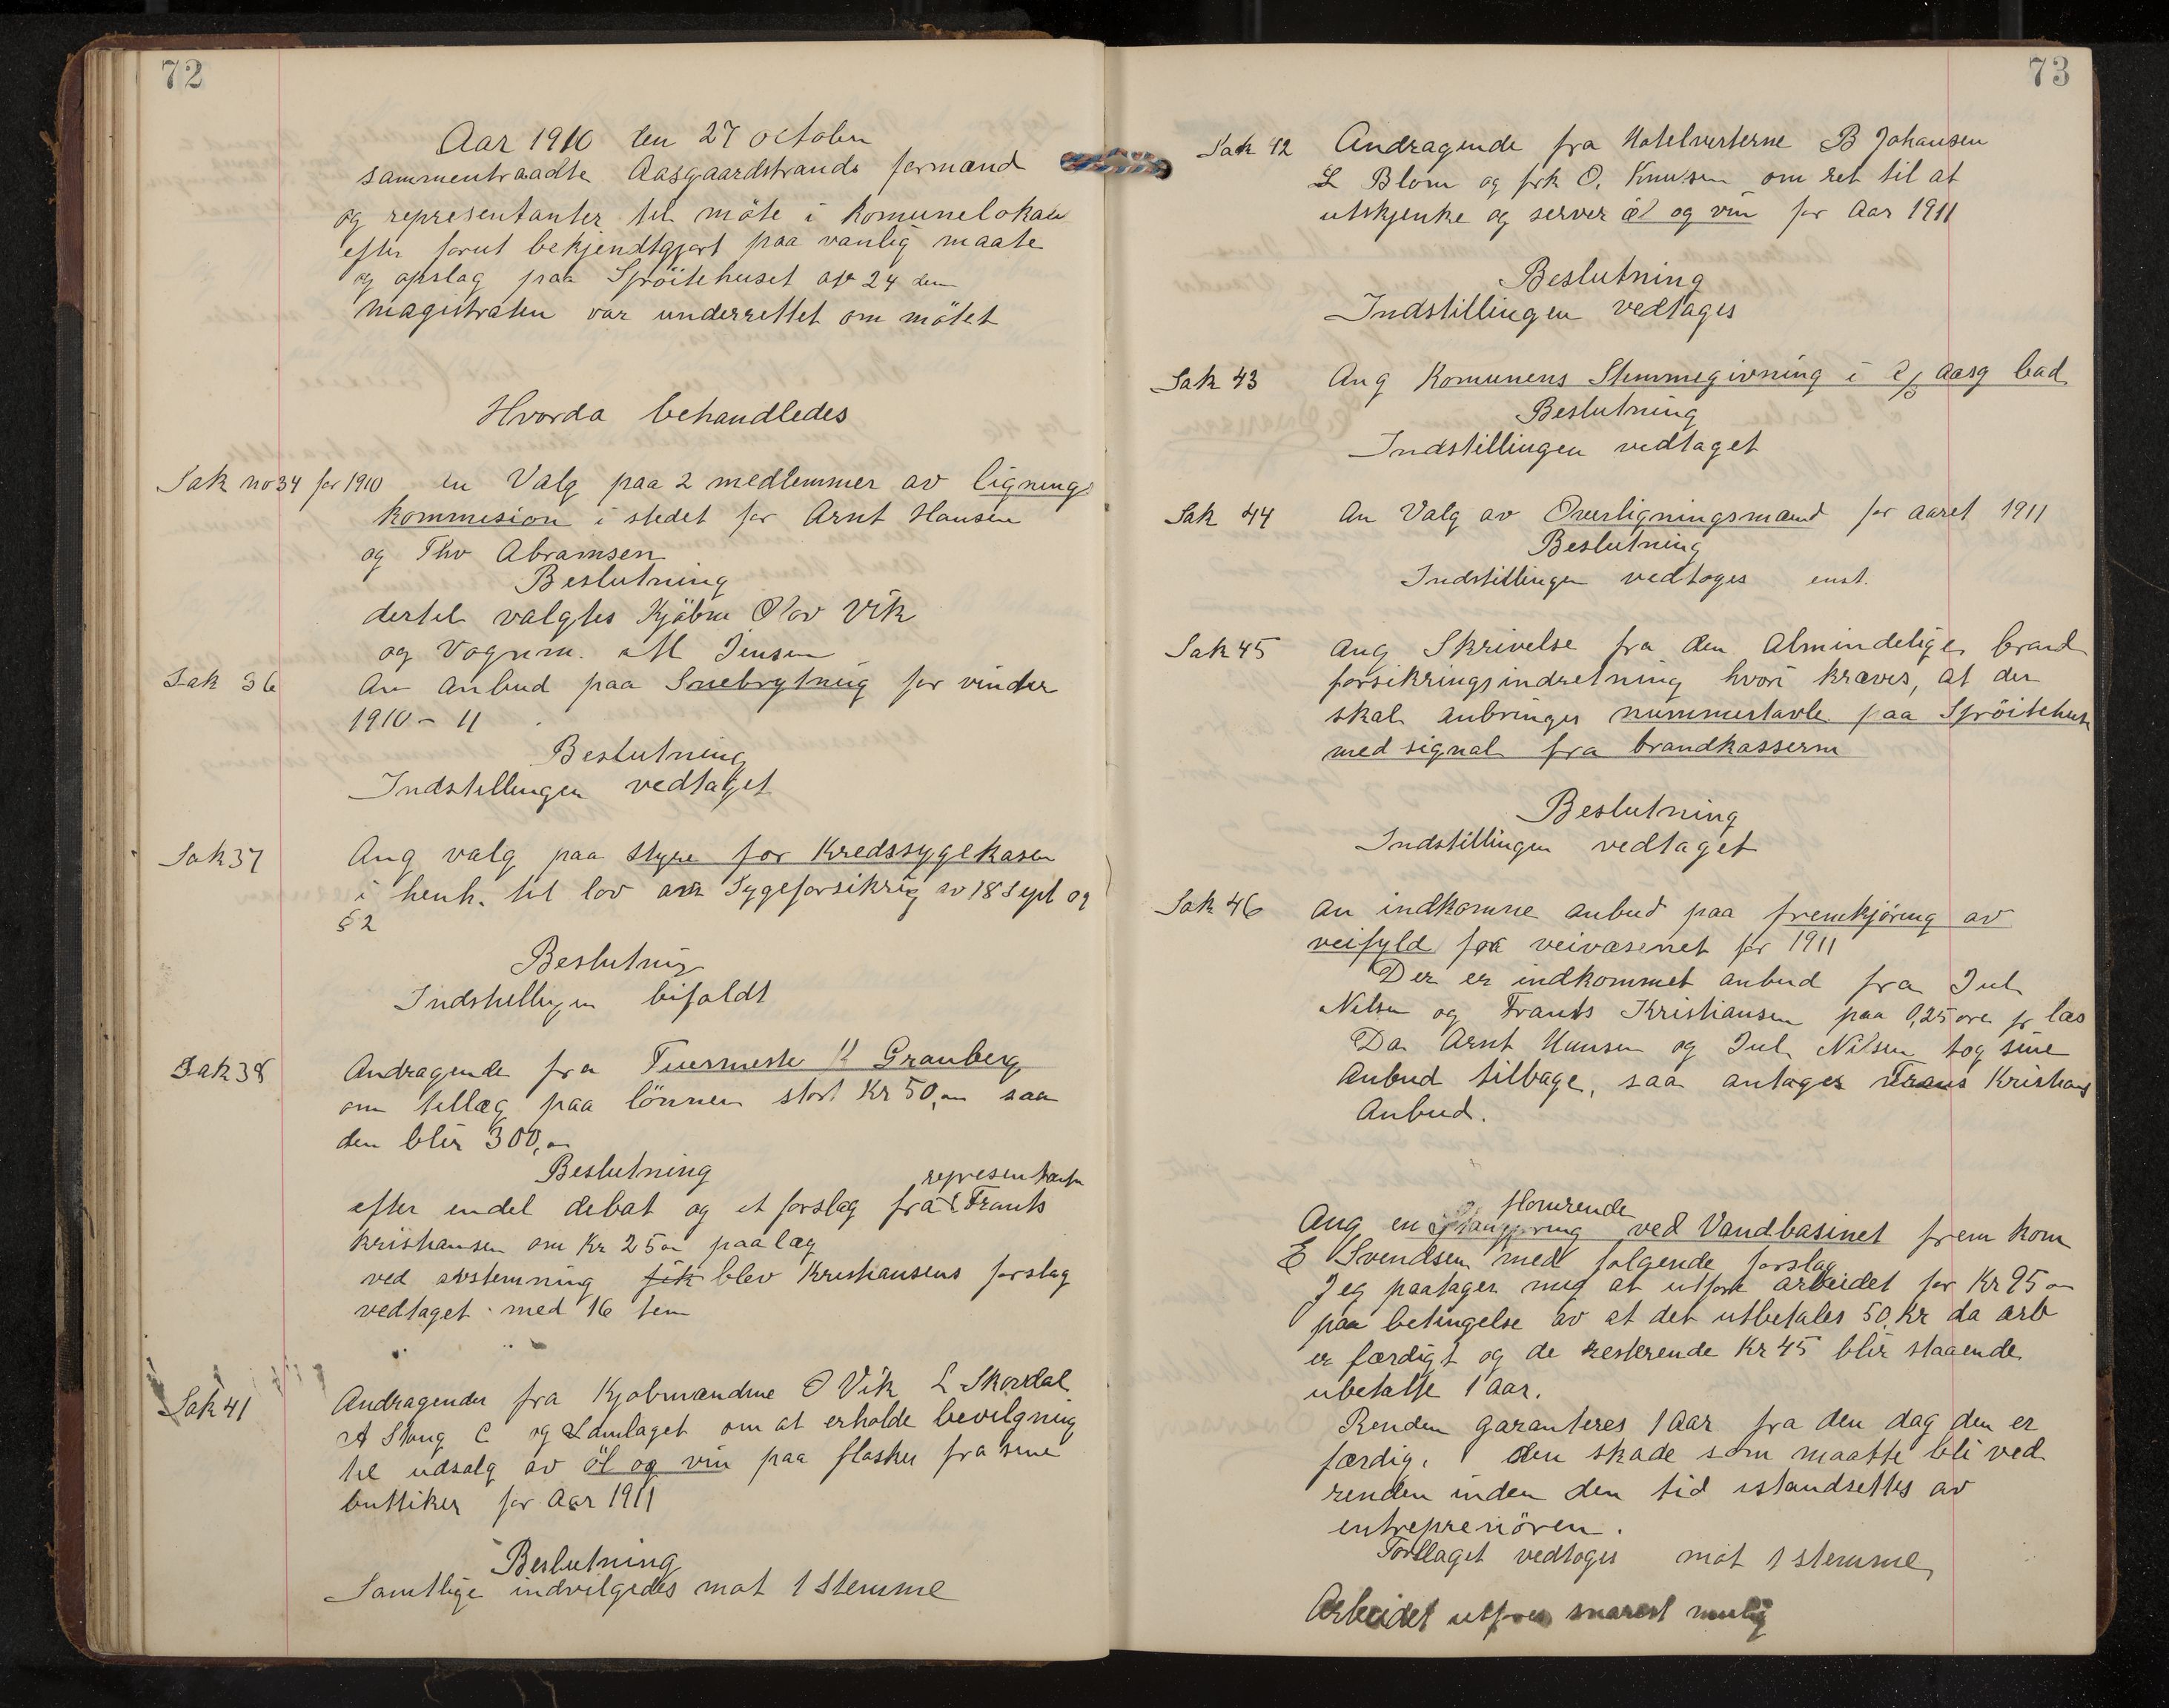 72
Aar 1910 den 27 october
sammentraadte Aasgaardstrands formænd
og representanter til möte i komunelokale
efter forut bekjendtgjort paa vanlig maate
og opslag paa Spröitehuset av 24 dem
magistraten var underrettet om mötet
Hvorda behandledes
Sak no 34 for 1910 en Valg paa 2 medlemmer av lignings
kommesion i stedet for Arnt Hansen
og Thv Abramsen
Beslutning
dertil valgtes Kjöbm Olov Vik
og Vognm. M Jensen
Sak 36 An anbud paa Snebrytning for vinder
1910 - 11
Beslutning
Indstillingen vedtaget
Sak 37 Ang valg paa styre for Kredssygekasen
i henh. til lov om Sygeforsikrig av 18 Sept 09
§ 2
Beslutning
Indstillingen bifaldt
Sak 38 Andragende fra Tuermeste K Granberg
om tillæg paa lönnen stort Kr 50,00 saa
den blir 300,00
Beslutning
representant
efter endel debat og et forslag fra Frants
Kristiansen om Kr 25 00 paalæg
ved avstemning fik blev Kristiansens forslag
vedtaget med 16 tem
Sak 41 Andragender fra Kjøbmændene O Vik L Skovdal
A Stang C og Samlaget om at erholde bevilgning
til udsalg av öl og vin paa flasker fra sine
buttiker for Aar 1911
Beslutning
Samtlige indvilgedes mot 1 Stemme
73
Sak 42 Andragende fra Hotelverterne B Johansen
L Blom og frk O. Knusen om ret til at
utskjenke og server øl og vin for Aar 1911
Beslutning
Indstillingen vedtages
Sak 43 Ang Komunens Stemmegivning i a/s Aasg bad
Beslutning
Indstillingen vedtaget
Sak 44 An Valg av Overligningsmænd for aaret 1911
Beslutning
Indstillingen vedtages enst.
Sak 45 Ang Skrivelse fra den Almindelige brand
forsikringsindretning hvori kræves, at der
skal anbringes nummertavle paa Spröitehuse
med signal fra brandkasserne
Beslutning
Indstillingen vedtaget
Sak 46 An indkomne anbud paa fremkjöring av
veifyld for veivæsenet for 1911
Der er indkommet anbud fra Jul
Nilsen og Frants Kristiansen paa 0,25 øre pr læs
Da Arnt Hansen og Jul Nilsen tog sine
Anbud tilbage, saa antages Frans Kristians
Anbud.
flomrende
Ang en ved Vandbasinet frem kom
E Svendsen med følgende forslag
Jeg paatager mig at utføre arbeidet for Kr 95 00
paa betingelse av at det utbetales 50 Kr da arb
er færdigt og de resterende Kr 45 blir staaende
ubetalte 1 Aar.
Renden garanteres 1 Aar fra den dag den er
færdig, den skade som maatte bli ved
renden inden den tid istandsettes av
entreprenören.
Forslaget vedtoges mot 1 stemme,
Arbeidet utføres snarest mulig